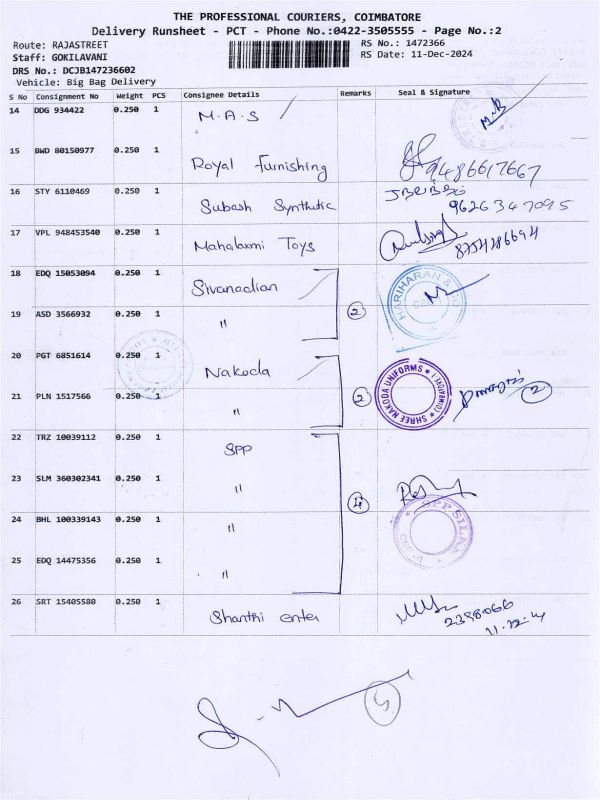 THE PROFESSIONAL COURIERS, COIMBATORE
Delivery Runsheet - PCT - Phone No.:0422-3505555 - Page No.:2
Route: RAJASTREET
RS No.: 1472366
Staff: GOKILAVANI
RS Date: 11-Dec-2024
DRS No.: DCJB147236602
Vehicle: Big Bag Delivery
S No Consignment No Weight PCS Consignee Details Remarks Seal & Signature
14 DDG 934422 0.250 1 M.A.S
15 BWD 80150977 0.250 1 Royal Furnishing 9486617667
16 STY 6110469 0.250 1 Subash Synthetic 9626347095
17 VPL 948453540 0.250 1 Mahalaxmi Toys
18 EDQ 15053094 0.250 1 Sivanadian HARIHARAN & CO
19 ASD 3566932 0.250 1 " 2
20 PGT 6851614 0.250 1 Nakoda
21 PLN 1517566 0.250 1 " 2 SHREE NAKODA UNIFORMS 2
22 TRZ 10039112 0.250 1 SPP
23 SLM 360302341 0.250 1 " 4
24 BHL 100339143 0.250 1 " SPP SILKS
25 EDQ 14475356 0.250 1 "
26 SRT 15405580 0.250 1 Shanthi enter 2398066
5